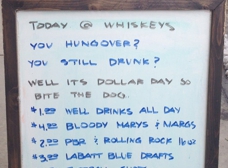 TODAY @ WHISKEYS
YOU HUNGOVER?
YOU STILL DRUNK?
WELL ITS DOLLAR DAY SO
BITE THE DOG.
$1.00 WELL DRINKS ALL DAY
$4.00 BLOODY MARYS & MARGS
$2.00 PBR & ROLLING ROCK 16oz
$3.00 LABATT BLUE DRAFTS